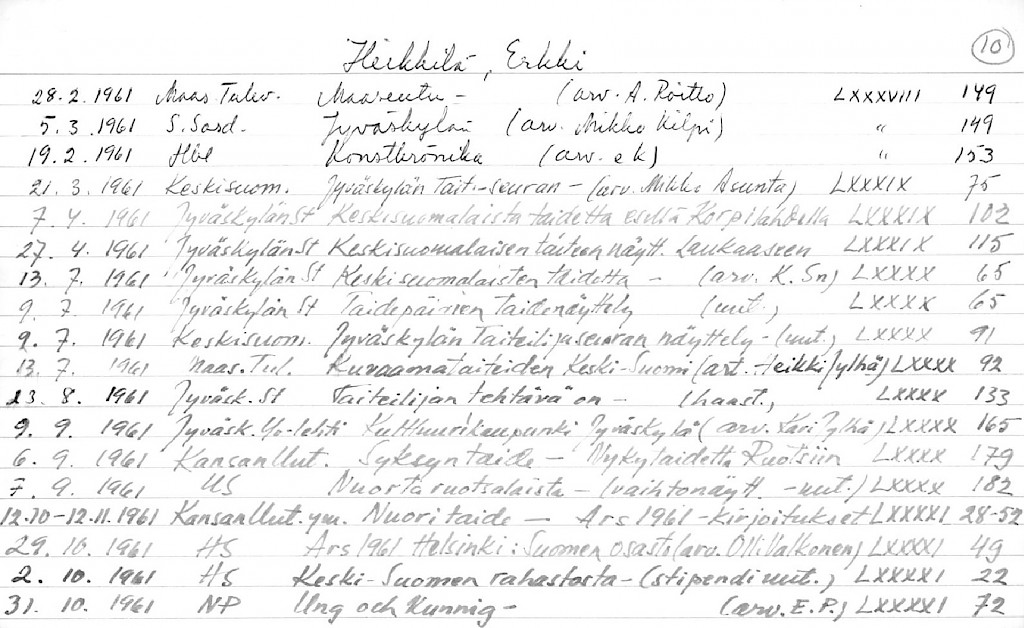 101
Heikkilä, Erkki
28.2.1961 Maas.Tulev. Maaseutu - (arv. A. Röitto) LXXXVIII 149
5.3.1961 S. Sosd. Jyväskylän (arv. Mikko Kilpi) " 149
19.2.1961 Hbl Konstkrönika (arv. ek) " 153
21.3.1961 Keskisuom. Jyväskylän Tait.-seuran - (arv. Mikko Asunta) LXXXIX 75
7.4.1961 Jyväskylän St Keskisuomalaista taidetta esillä Korpilahdella LXXXIX 102
27.4.1961 Jyväskylän St Keskisuomalaisen taiteen näytt. Laukaaseen LXXXIX 115
13.7.1961 Jyväskylän St Keskisuomalaisten taidetta - (arv. K. Sn) LXXXX 65
9.7.1961 Jyväskylän St Taidepäivien taidenäyttely (uut., LXXXX 65
9.7.1961 Keskisuom. Jyväskylän Taiteilijaseuran näyttely - (uut.) LXXXX 91
13.7. 1961 Maas.Tul. Kuvaamataiteiden Keski-Suomi (art. Heikki Jylhä) LXXXX 92
23.8.1961 Jyväsk. St Taiteilijan tehtävä on - (haast., LXXXX 133
9.9.1961 Jyväsk. Yo-lehti Kulttuurikaupunki Jyväskylä (arv. Kari Jylhä) LXXXX 165
6.9.1961 Kansan Uut. Syksyn taide - Nykytaidetta Ruotsiin LXXXX 179
7.9.1961 US Nuorta ruotsalaista - (vaihtonäytt. -uut.) LXXXX 182
12.10-12.11.1961 Kansan Uut. ym. Nuori taide - Ars 1961 - kirjoitukset LXXXXI 28-52
29.10.1961 HS Ars 1961 Helsinki: Suomen osasto (arv. Olli Valkonen) LXXXXI 49
2.10.1961 HS Keski-Suomen rahastosta - (stipendi uut.) LXXXXI 22
31.10.1961 NP Ung och Kunnig - (arv. E.P.) LXXXXI 72